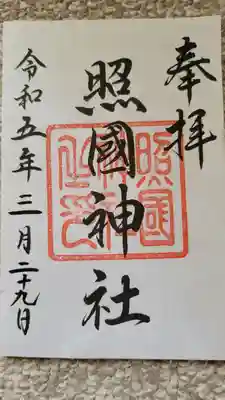 奉拝
照國神社
令和五年三月二十九日